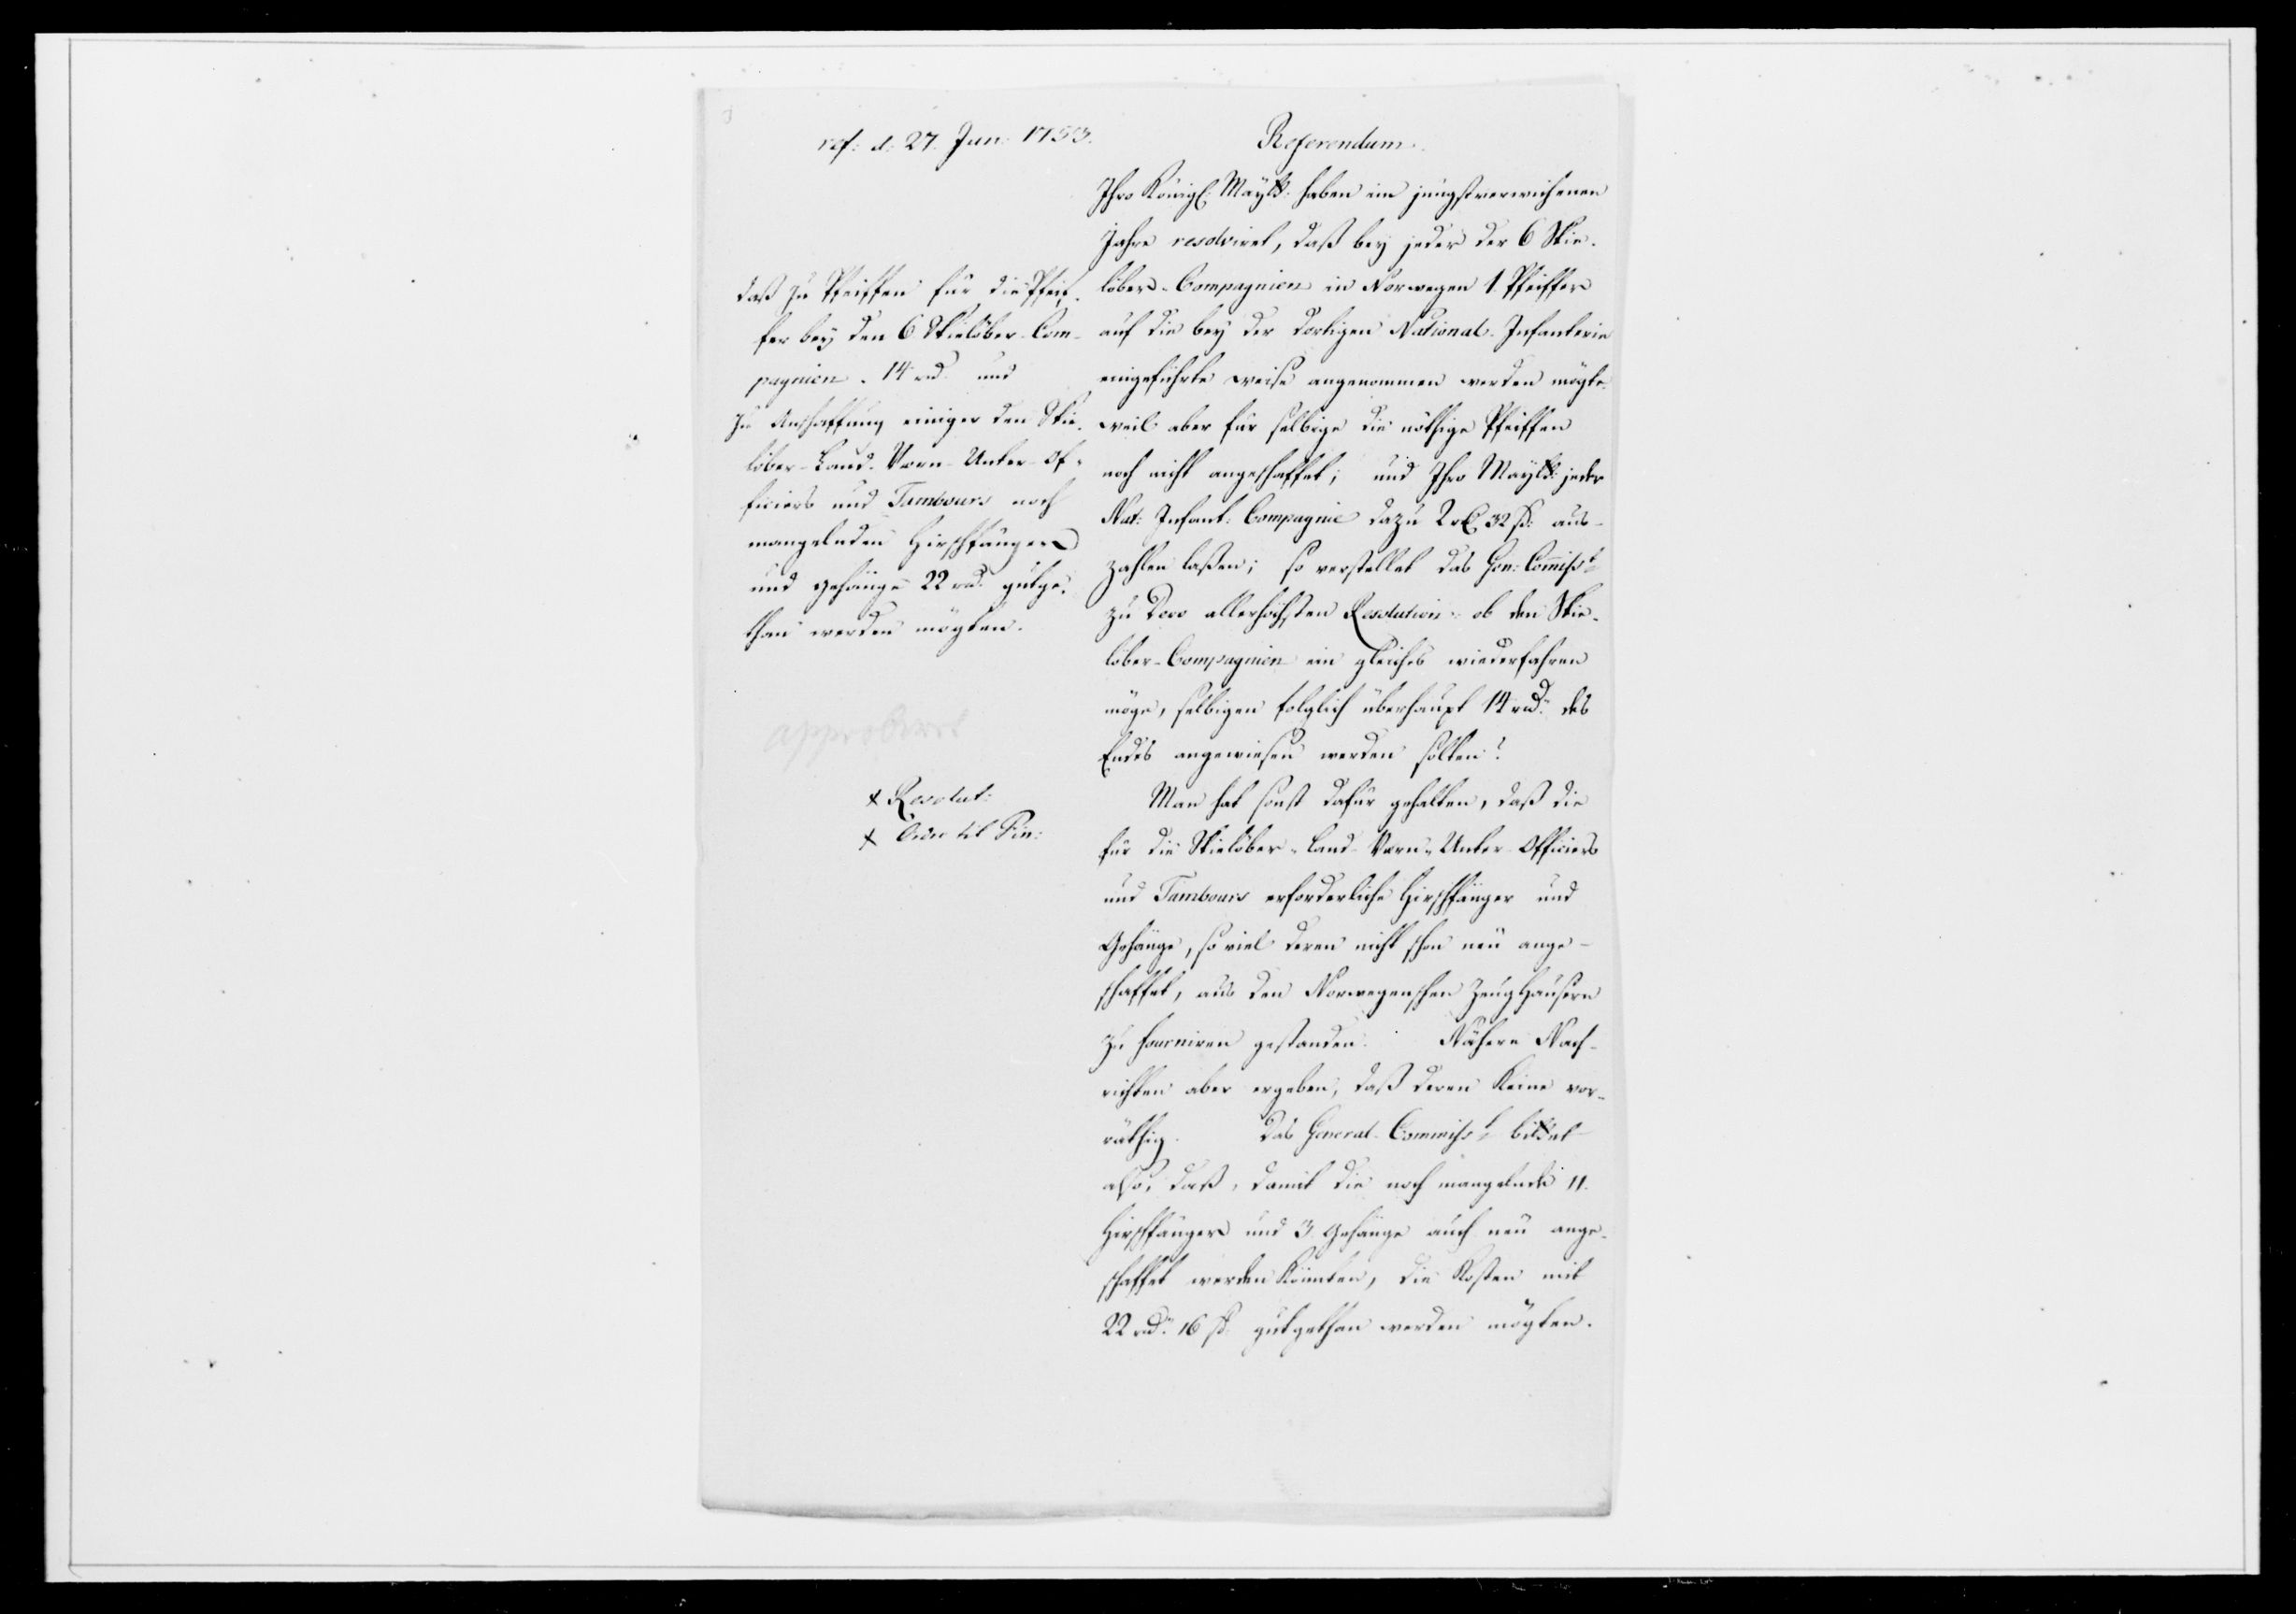 ref: d: 27. Jun: 1753.
Referendum.
daß zu Pfeiffen für die Pfeif-
fer bey den 6 Skielöber-Com-
pagnien. 14 rd. und
zu Anschaffung einiger den Skie-
löber-Land-Varn-Unter-Of-
ficiers und Tambours noch
mangelnden Hirschfänger
und Gehänge 22 rd. gutge-
than werden mögten.
approberet
x Resolut:
x Ordre til Fin:
Ihro Königl: Maytt: haben im jüngstverwichenen
Jahre resolviret, daß bey jeder der 6 Skie-
löber-Compagnien in Norwegen 1 Pfeiffer
auf die bey der dortigen National-Infanterie
eingeführte weise angenommen werden mögte.
weil aber für selbige die nöthige Pfeiffen
noch nicht angeschaffet; und Ihro Maytt: jeder
Nat: Infant: Compagnie dazu 2 rd 32 ß: aus-
zahlen laßen; so verstellet das Gen: Commiss.
zu Dero allerhöchsten Resolution: ob den Skie-
löber-Compagnien ein gleiches wiederfahren
möge, selbigen folglich überhaupt 14 rd. des
Endes angewiesen werden sollen?
Man hat sonst dafür gehalten, daß die
für die Skielöber-Land-Varn-Unter-Officiers
und Tambours erforderliche Hirschfänger und
Gehänge, so viel deren nicht schon neu ange-
schaffet, aus den Norwegenschen Zeughäusern
zu fourniren gestanden. Nähere Nach-
richten aber ergeben, daß deren keine vor-
räthig. Das General-Commiss. bittet
also, daß, damit die noch mangelnde 11
Hirschfänger und 3 Gehänge auch neu ange-
schaffet werden könnten, die Kosten mit
22 rd. 16 ß. gutgethan werden mögten.